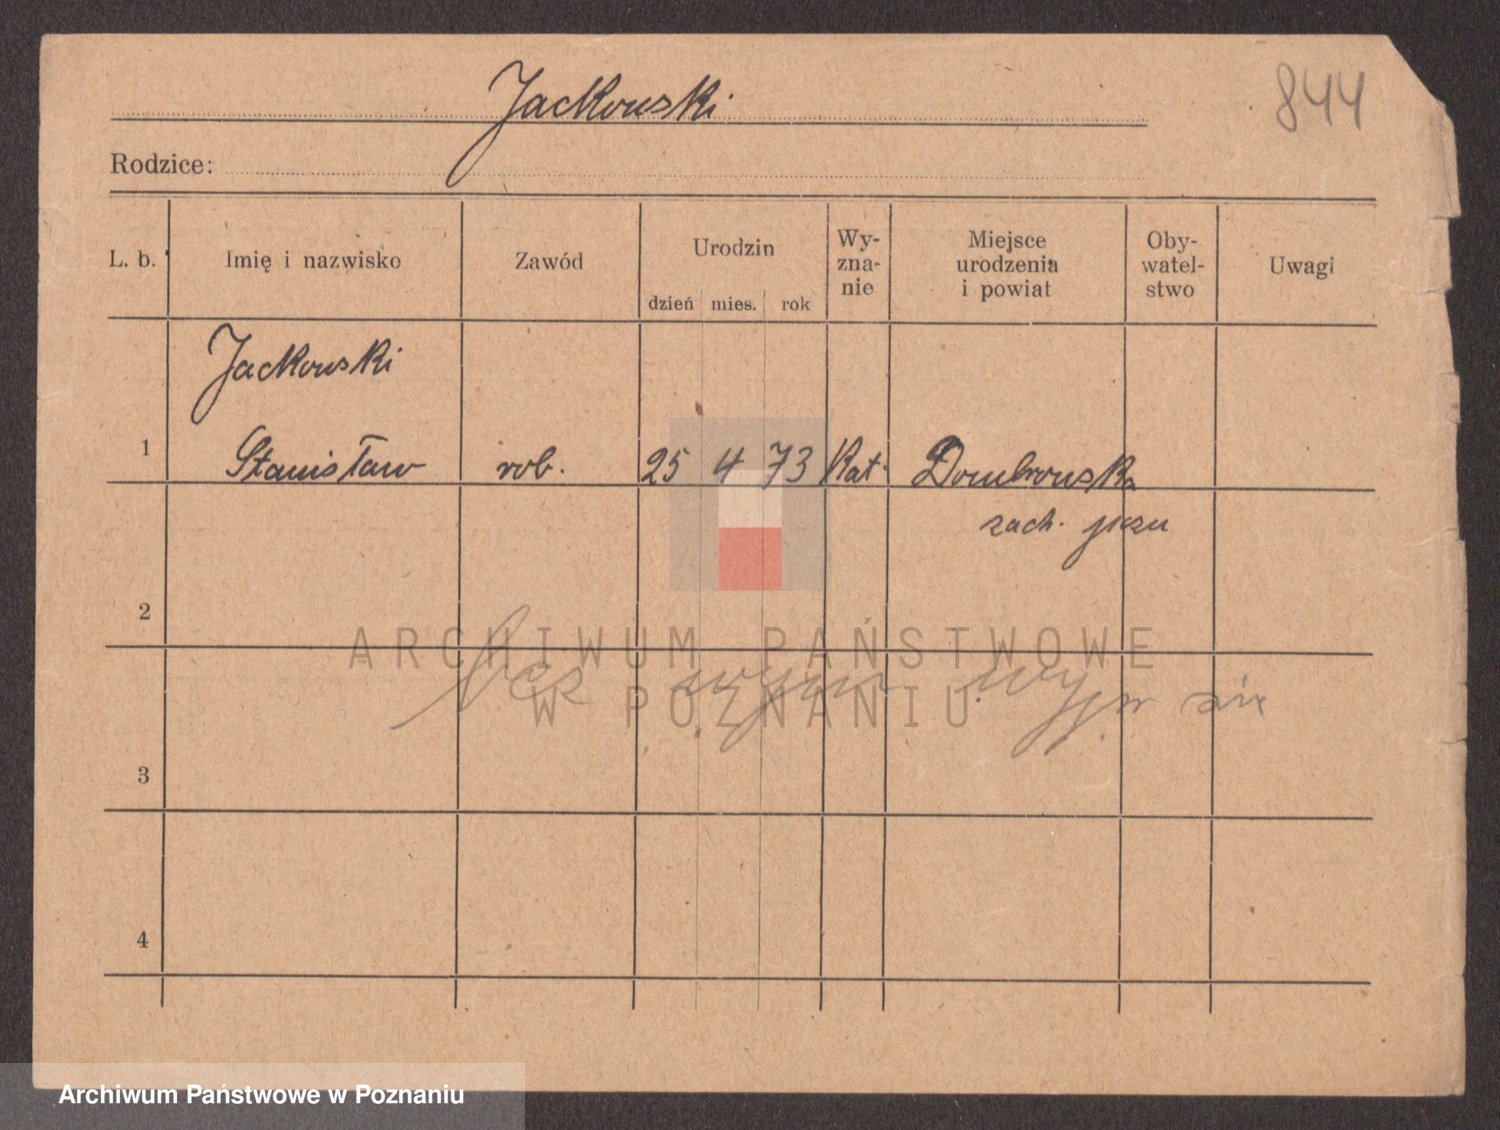 Jackowski
844
Rodzice:
L. b. Imię i nazwisko Zawód Urodzin dzień mies. rok Wy-zna-nie Miejsce urodzenia i powiat Oby-watel-stwo Uwagi
Jackowski
1 Stanisław rob. 25 4 73 Kat. Dombrowska
zach.
2
ARCHIWUM PAŃSTWOWE
bez wym się
W POZNANIU
3
4
Archiwum Państwowe w Poznaniu